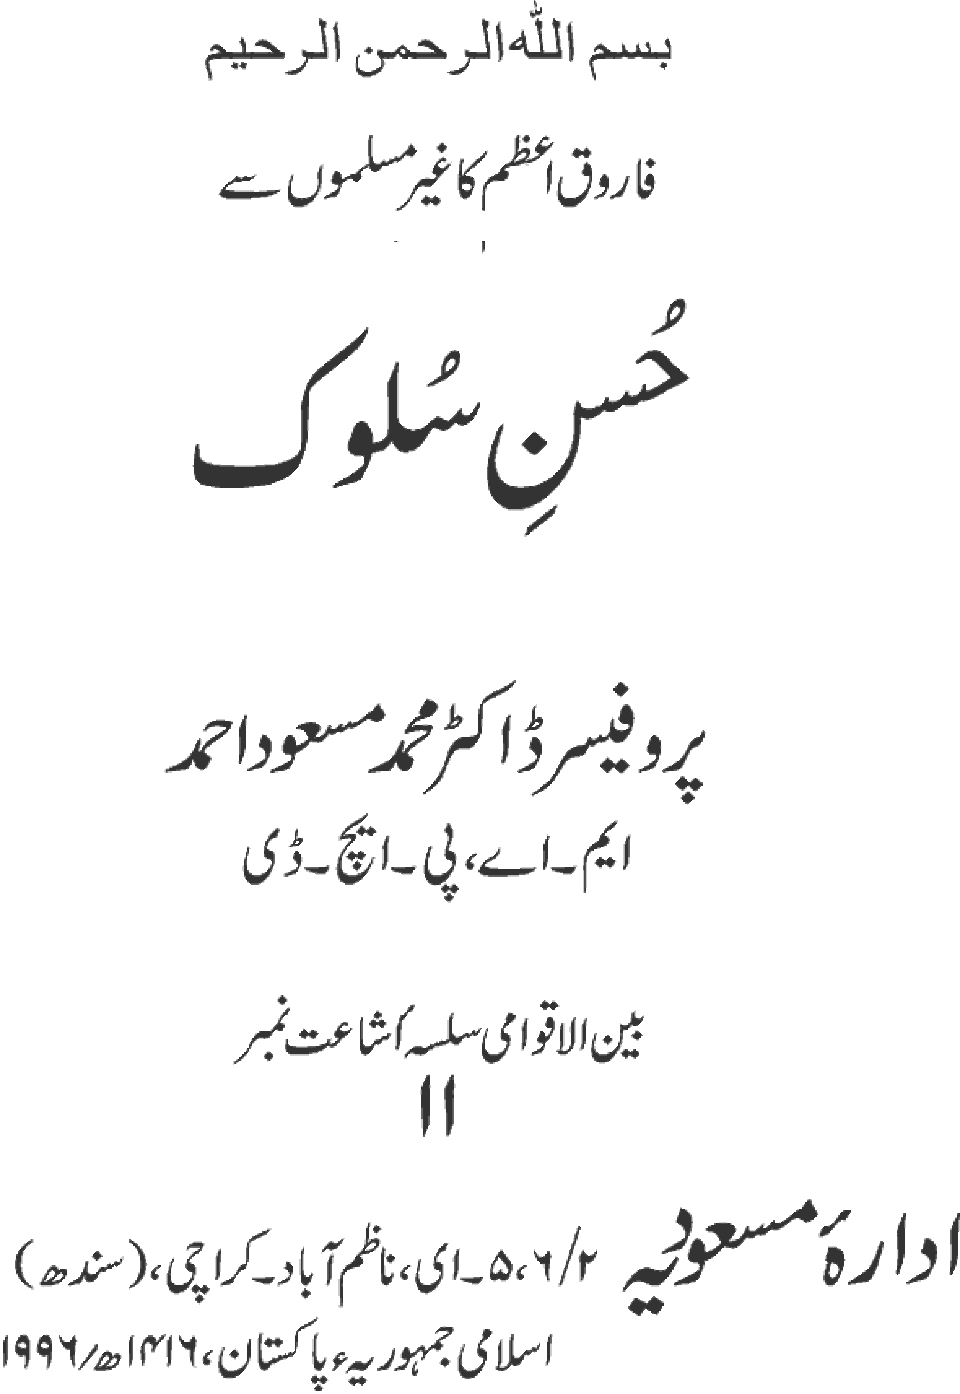 بسم اللہ الرحمن الرحیم
فاروق اعظم کا غیر مسلموں سے
حُسنِ سُلوک
پروفیسر ڈاکٹر محمد مسعود احمد
ایم۔اے، پی۔ایچ۔ڈی
بین الاقوامی سلسہ اُشاعت نمبر
۱۱
ادارۂ مسعودیہ ۶/۲، ۵۔ای، ناظم آباد۔کراچی، (سندھ)
اسلامی جمہوریہء پاکستان، ۱۴۱۶ھ/۱۹۹۶